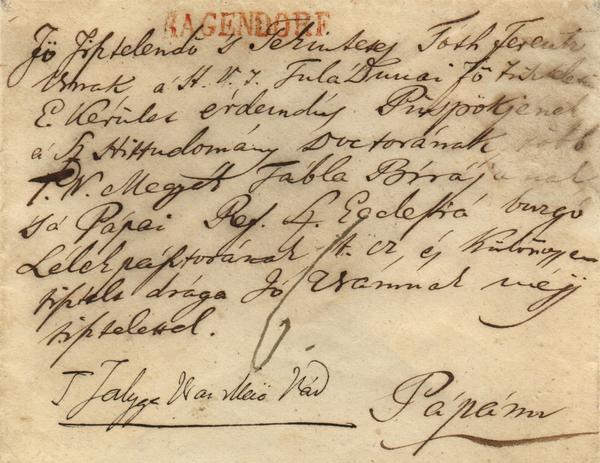 RAGENDORF
Jó Tiszteletendő s Tekintetes Toth Ferentz
Urnak, a H. V. T. Tulá Dunai
E. Kerület érdemdús Püspökjének
a Sz Hittudomány Doctorának több
T. N. Megyék Tábla Bírájának
s a Pápai Ref. Sz. Ecclesia buzgó
Lelkipásztorának 's. cz. és Különössen
tisztelt drága Jó Uramnak mély
tisztelettel.
Pápán